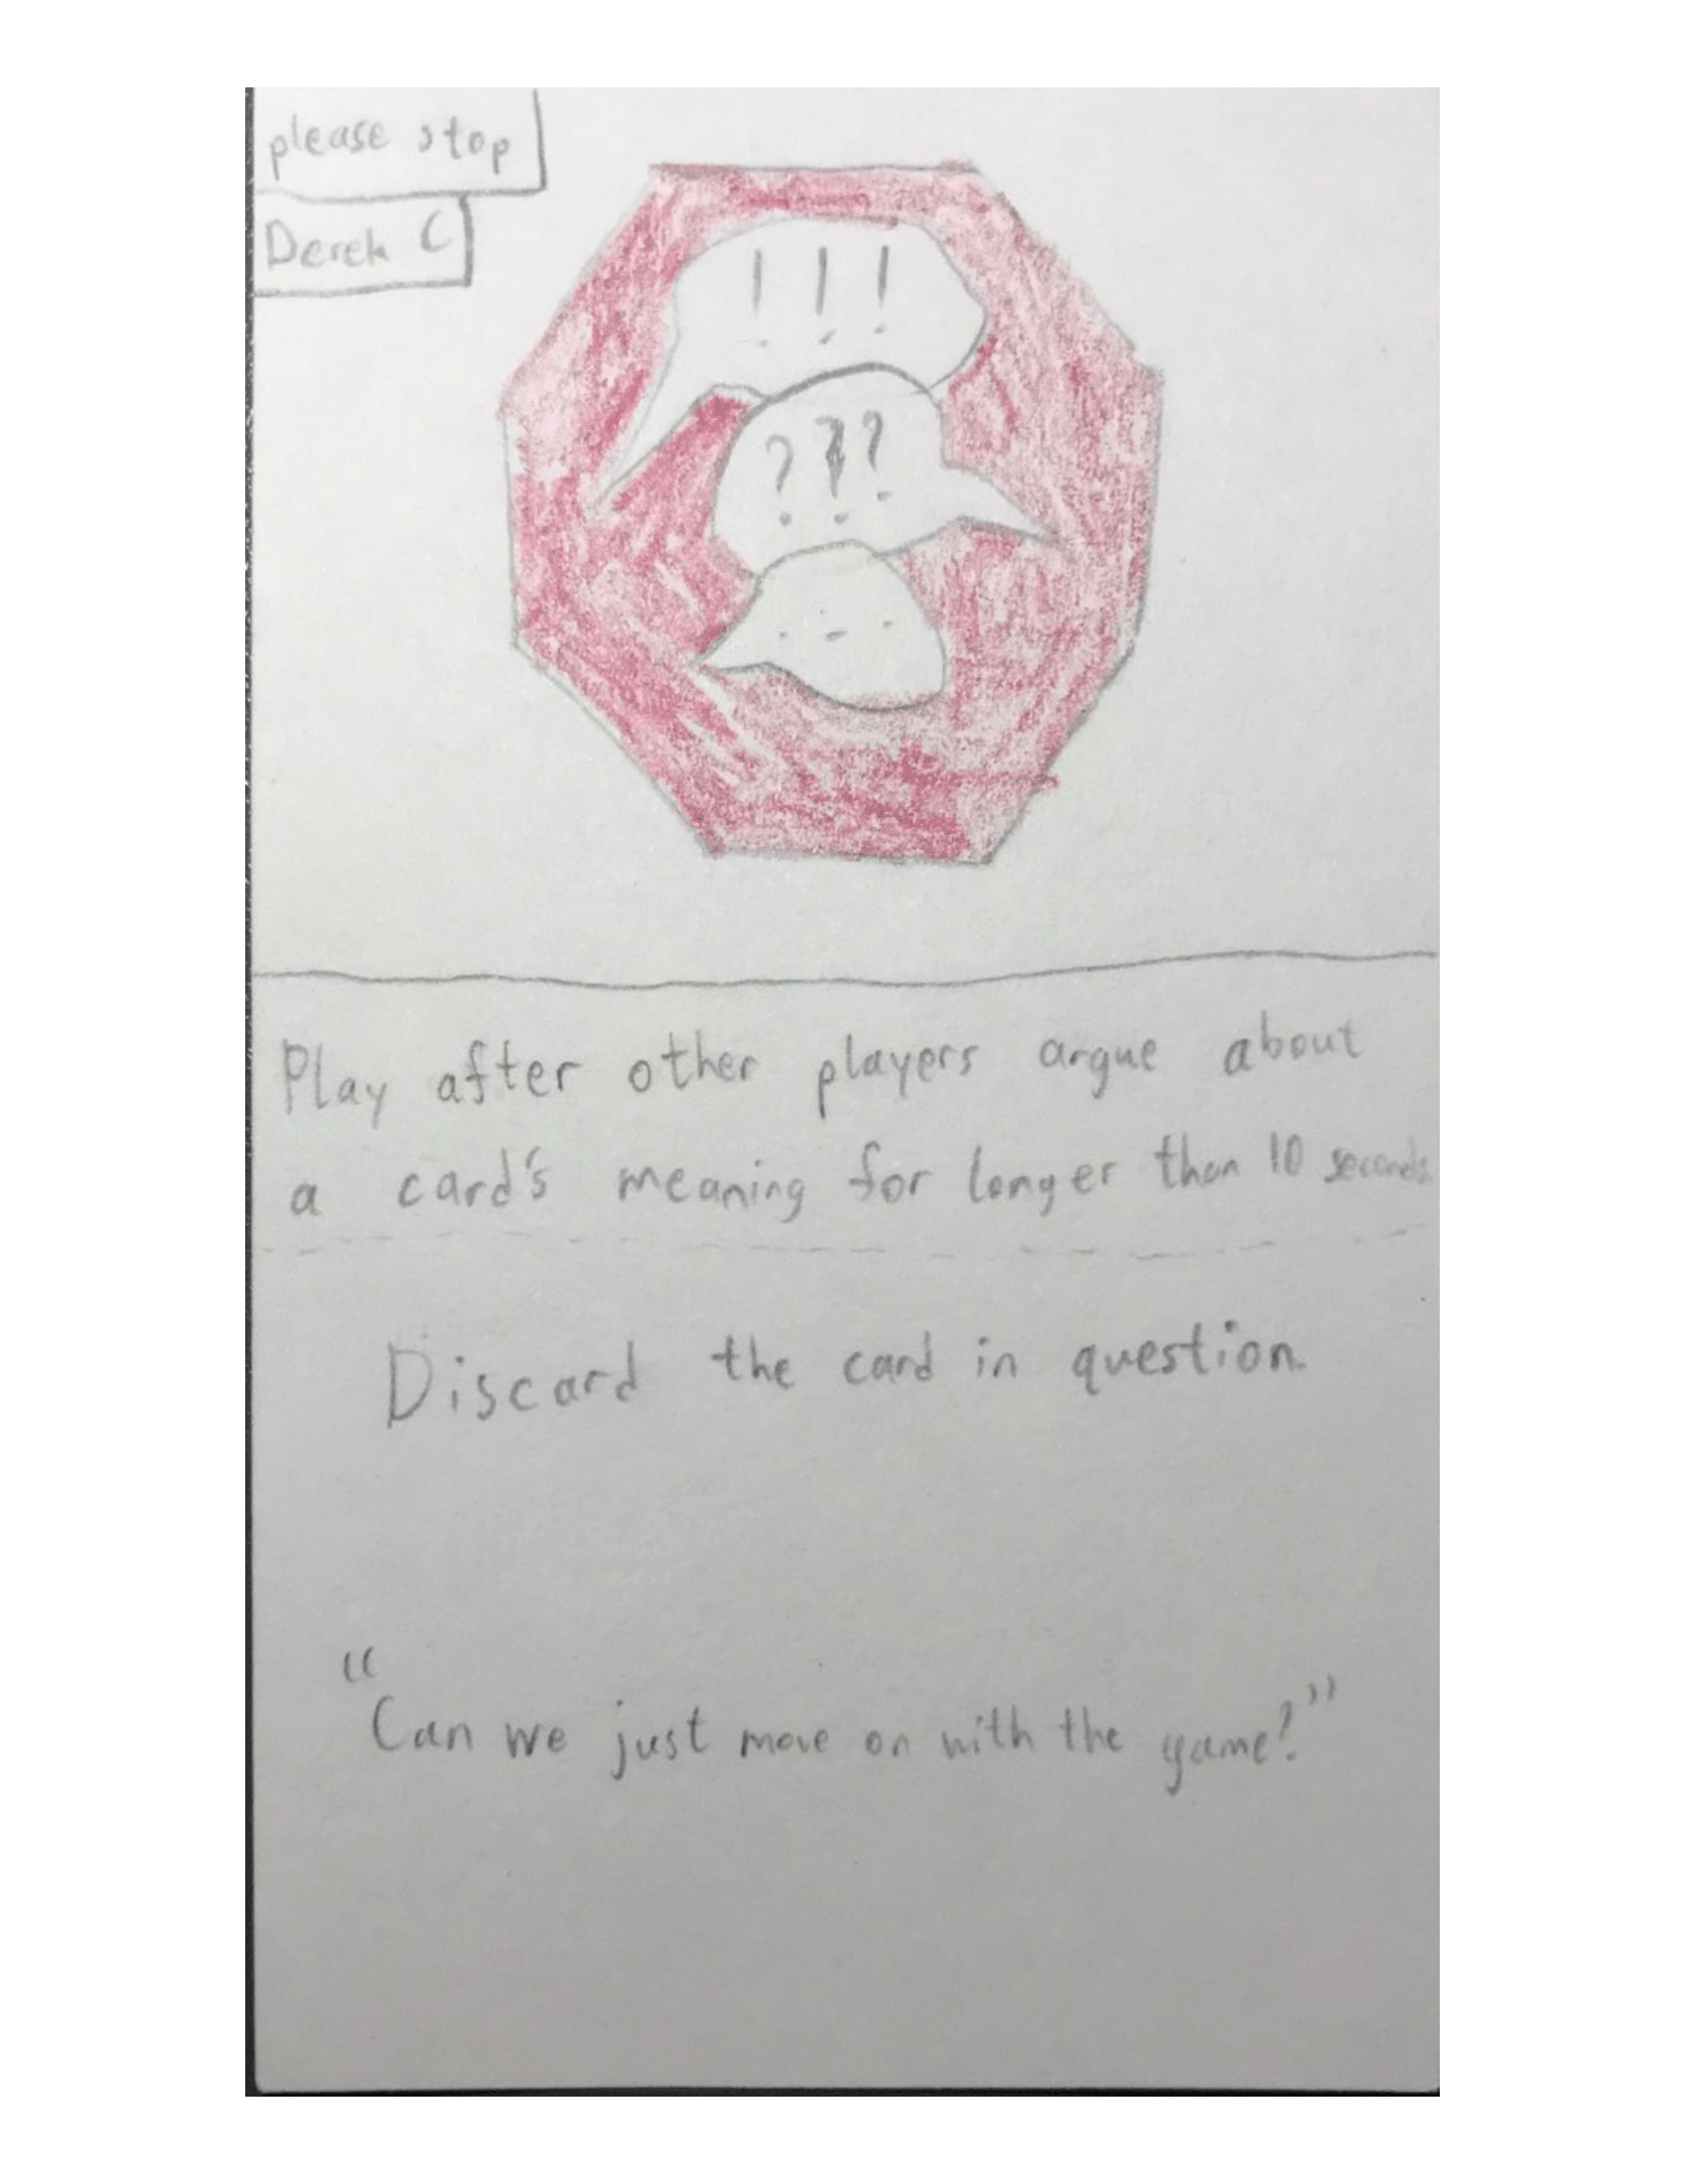 please stop
Derek C
!!!
???
...
Play after other players argue about
a card's meaning for longer than 10 seconds.
Discard the card in question.
"Can we just move on with the game?"